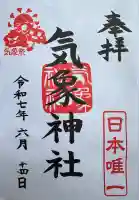 奉拝
気象神社
令和七年六月十四日
気象祭
日本唯一